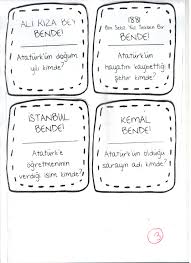 ALİ RIZA BEY
BENDE!
Atatürk'ün doğum
yılı kimde?
1881
Bin Sekiz Yüz Seksen Bir
BENDE!
Atatürk'ün
hayatını kaybettiği
şehir kimde?
İSTANBUL
BENDE!
Atatürk'e
öğretmeninin
verdiği isim kimde?
KEMAL
BENDE!
Atatürk'ün öldüğü
sarayın adı kimde?